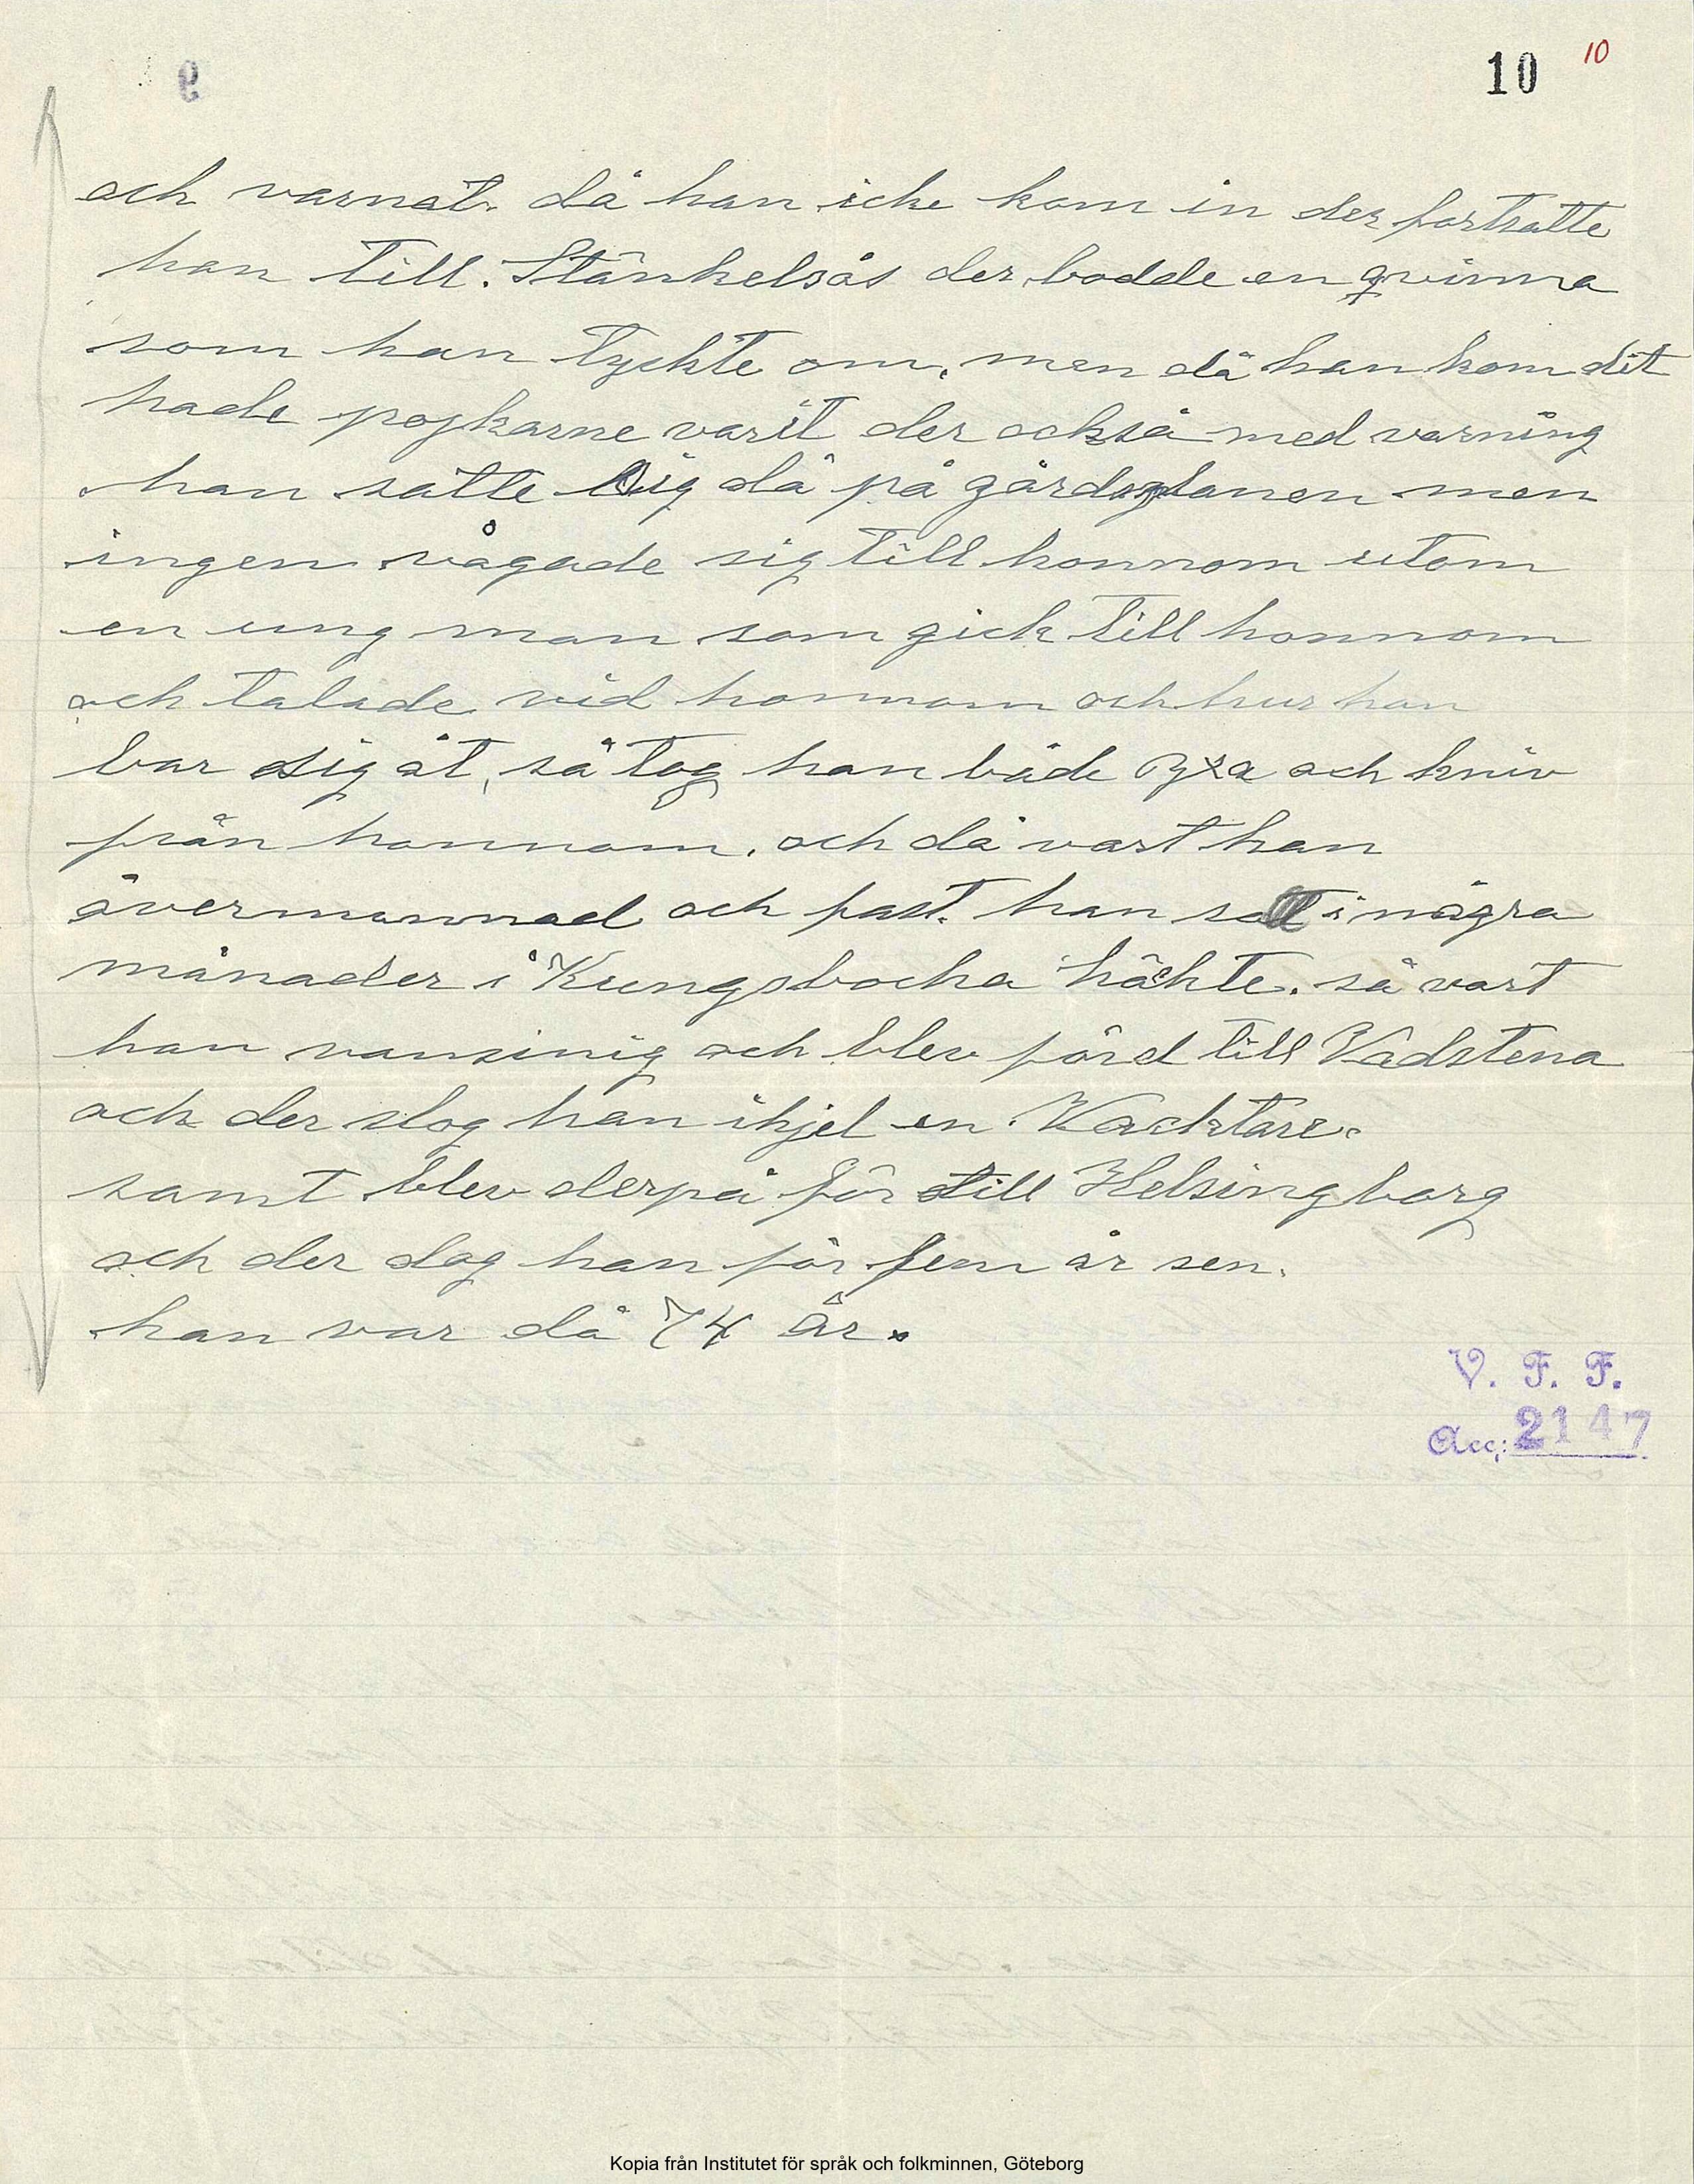 10 10
och varnat. då han icke kom in der fortsatte
han till. Stänkelsås der bodde en qvinna
som han tyckte om. men då han kom dit
hade pojkarne varit der också med varning
han satte sig då på gårdsplanen men
ingen vågade sig till honnom utom
en ung man som gick till honnom
och talade vid honnom och hur han
bar sig åt, så tog han både yxa och kniv
från honnom. och då vart han
övermannad och fast. han satt i några
månader i Kungsbacka häkte. så vart
han vansinig och blev förd till Vadstena
och der slog han ihjel en Vacktare.
samt blev derpå för till Helsingborg
och der dog han för fem år sen.
han var då 74 år.
V. F. F.
Acc: 2147
Kopia från Institutet för språk och folkminnen, Göteborg